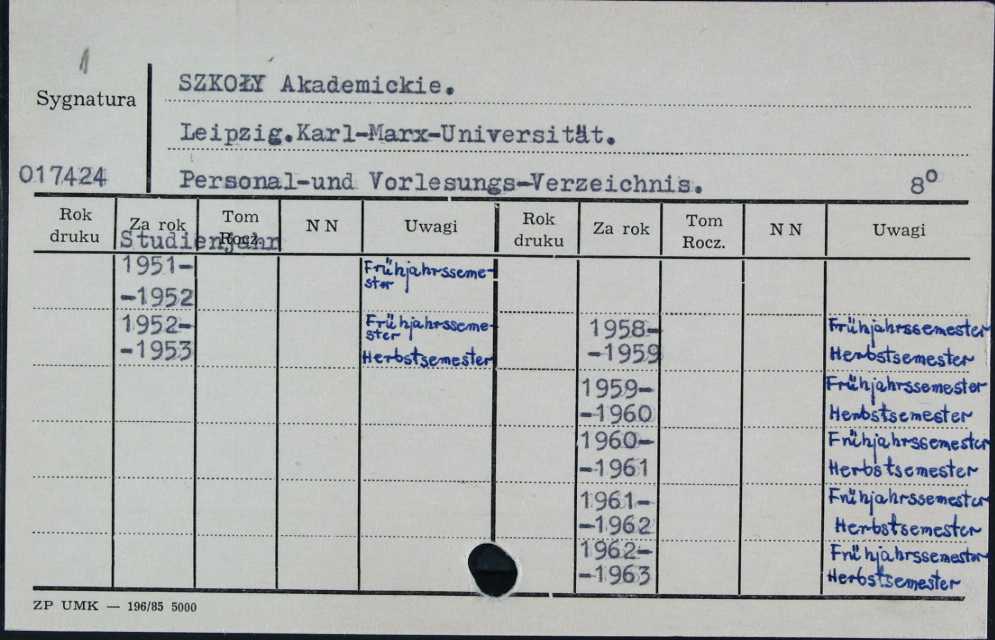 1
SZKOŁY Akademickie.
Sygnatura
Leipzig.Karl-Marx-Universität.
017424
Personal-und Vorlesungs-Verzeichnis. 8°
Rok druku Za rok Tom Rocz. N N Uwagi Rok druku Za rok Tom Rocz. N N Uwagi
Studienjahr
1951- Frühjahrsseme-
-1952 ster
1952- Frühjahrsseme-
ster
-1953 Herbstsemester
1958- Frühjahrssemester
-1959 Herbstsemester
1959- Frühjahrssemester
-1960 Herbstsemester
1960- Frühjahrssemester
-1961 Herbstsemester
1961- Frühjahrssemester
-1962 Herbstsemester
1962- Frühjahrssemester
-1963 Herbstsemester
ZP UMK — 196/85 5000